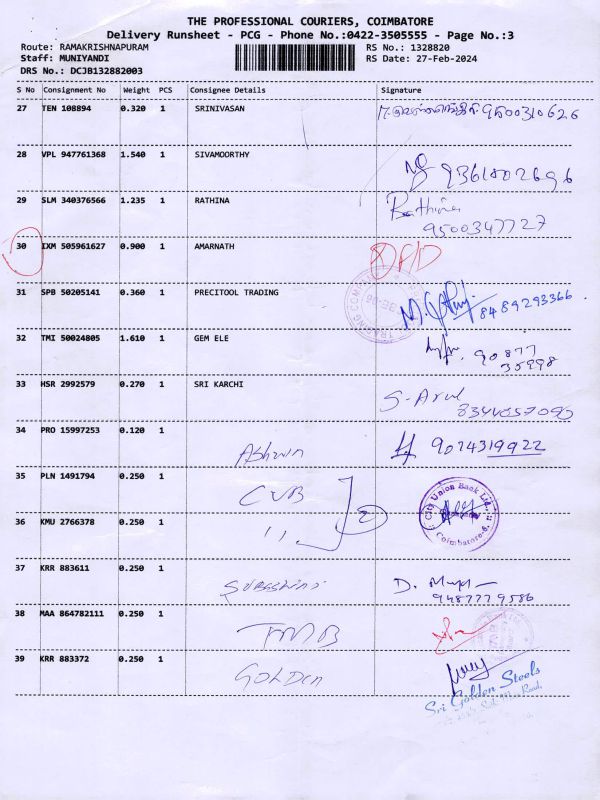 THE PROFESSIONAL COURIERS, COIMBATORE
Delivery Runsheet - PCG - Phone No.:0422-3505555 - Page No.:3
Route: RAMAKRISHNAPURAM RS No.: 1328820
Staff: MUNIYANDI RS Date: 27-Feb-2024
DRS No.: DCJB132882003
S No Consignment No Weight PCS Consignee Details Signature
27 TEN 108894 0.320 1 SRINIVASAN 9500310626
28 VPL 947761368 1.540 1 SIVAMOORTHY
9361802696
29 SLM 340376566 1.235 1 RATHINA Rathina
9500347727
30 IXM 505961627 0.900 1 AMARNATH
31 SPB 50205141 0.360 1 PRECITOOL TRADING 8489293366
32 TMI 50024805 1.610 1 GEM ELE 90877
35998
33 HSR 2992579 0.270 1 SRI KARCHI S. Arul
8344057090
34 PRO 15997253 0.120 1 Ashwin 9074319922
35 PLN 1491794 0.250 1 CUB City Union Bank Ltd.,
36 KMU 2766378 0.250 1 " 2 Coimbatore
37 KRR 883611 0.250 1 D.
9487779586
38 MAA 864782111 0.250 1 TMB
39 KRR 883372 0.250 1 GOLDEN
Sri Golden Steels